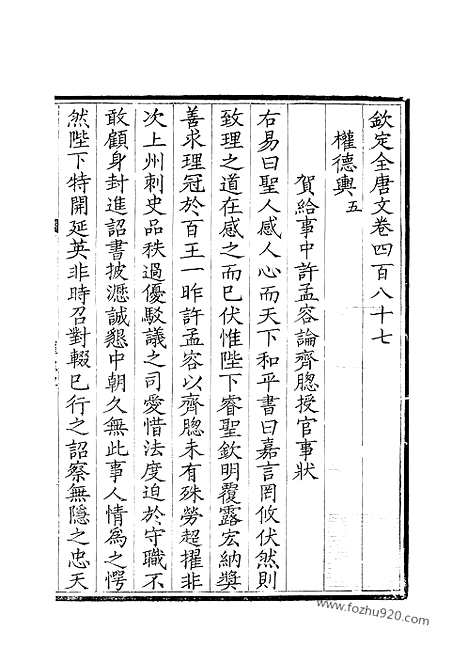 欽定全唐文卷四百八十七
權德輿五
賀給事中許孟容論齊總授官事狀
右易曰聖人感人心而天下和平書曰嘉言罔攸伏然則
致理之道在感之而已伏惟陛下睿聖欽明覆露宏納奬
善求理冠於百王一昨許孟容以齊總未有殊勞超擢非
次上州刺史品秩過優駁議之司愛惜法度迫於守職不
敢顧身封進詔書披瀝誠懇中朝久無此事人情爲之愕
然陛下特開延英非時召對輟已行之詔察無隱之忠天
www.fozhu920.com